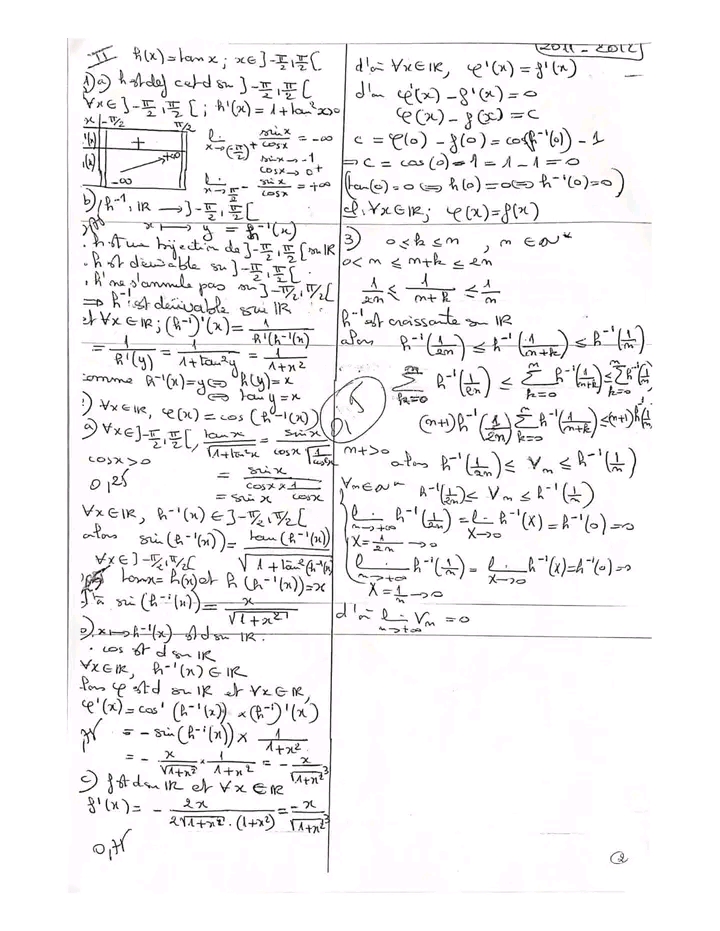 II h(x) = tan x ; x ∈ ]-π/2, π/2[
1) a) h est def et d sur ]-π/2, π/2[
∀x ∈ ]-π/2, π/2[ ; h'(x) = 1 + tan²x > 0
x | -π/2 π/2
h'(x) | +
h(x) | -∞ +∞
lim x→(-π/2)+ sin x / cos x = -∞
sin x → -1
cos x → 0+
lim x→π/2- sin x / cos x = +∞
b) h⁻¹ : IR → ]-π/2, π/2[
x ↦ y = h⁻¹(x)
. h est une bijection de ]-π/2, π/2[ sur IR
. h est dérivable sur ]-π/2, π/2[
. h' ne s'annule pas sur ]-π/2, π/2[
⇒ h⁻¹ est dérivable sur IR
et ∀x ∈ IR ; (h⁻¹)'(x) = 1 / h'(h⁻¹(x))
= 1/h'(y) = 1/(1+tan²y) = 1/(1+x²)
comme h⁻¹(x) = y ⇔ h(y) = x
⇔ tan y = x
) ∀x ∈ IR, φ(x) = cos(h⁻¹(x))
a) ∀x ∈ ]-π/2, π/2[, tan x / √(1+tan²x) = sin x / (cos x √(1/cos²x))
cos x > 0
= sin x / (cos x × 1/cos x)
0,25
= sin x
∀x ∈ IR, h⁻¹(x) ∈ ]-π/2, π/2[
alors sin(h⁻¹(x)) = tan(h⁻¹(x)) / √(1+tan²(h⁻¹(x)))
∀x ∈ ]-π/2, π/2[
tan x = h(x) et h(h⁻¹(x)) = x
d'où sin(h⁻¹(x)) = x / √(1+x²)
x ↦ h⁻¹(x) est d sur IR.
. cos est d sur IR
∀x ∈ IR, h⁻¹(x) ∈ IR
φ est d sur IR et ∀x ∈ IR,
φ'(x) = cos'(h⁻¹(x)) × (h⁻¹)'(x)
= - sin(h⁻¹(x)) × 1/(1+x²)
= - x/√(1+x²) × 1/(1+x²) = - x/√(1+x²)³
c) f est d sur IR et ∀x ∈ IR
f'(x) = - 2x / (2√(1+x²) · (1+x²)) = -x/√(1+x²)³
2011 - 2012
d'où ∀x ∈ IR, φ'(x) = f'(x)
d'où φ'(x) - f'(x) = 0
φ(x) - f(x) = c
c = φ(0) - f(0) = cos(h⁻¹(0)) - 1
⇒ c = cos(0) - 1 = 1 - 1 = 0
(tan(0) = 0 ⇔ h(0) = 0 ⇔ h⁻¹(0) = 0)
∀x ∈ IR ; φ(x) = f(x)
3) 0 ≤ k ≤ n , n ∈ IN*
0 < n ≤ n+k ≤ 2n
1/2n ≤ 1/(n+k) ≤ 1/n
h⁻¹ est croissante sur IR
alors h⁻¹(1/2n) ≤ h⁻¹(1/(n+k)) ≤ h⁻¹(1/n)
∑ k=0 n h⁻¹(1/2n) ≤ ∑ k=0 n h⁻¹(1/(n+k)) ≤ ∑ k=0 n h⁻¹(1/n)
(n+1) h⁻¹(1/2n) ≤ ∑ k=0 n h⁻¹(1/(n+k)) ≤ (n+1) h⁻¹(1/n)
n+1 > 0
alors h⁻¹(1/2n) ≤ Vn ≤ h⁻¹(1/n)
∀n ∈ IN* h⁻¹(1/2n) ≤ Vn ≤ h⁻¹(1/n)
lim n→+∞ h⁻¹(1/2n) = lim X→0 h⁻¹(X) = h⁻¹(0) = 0
X = 1/2n → 0
lim n→+∞ h⁻¹(1/n) = lim X→0 h⁻¹(X) = h⁻¹(0) = 0
X = 1/n → 0
d'où lim n→+∞ Vn = 0
2